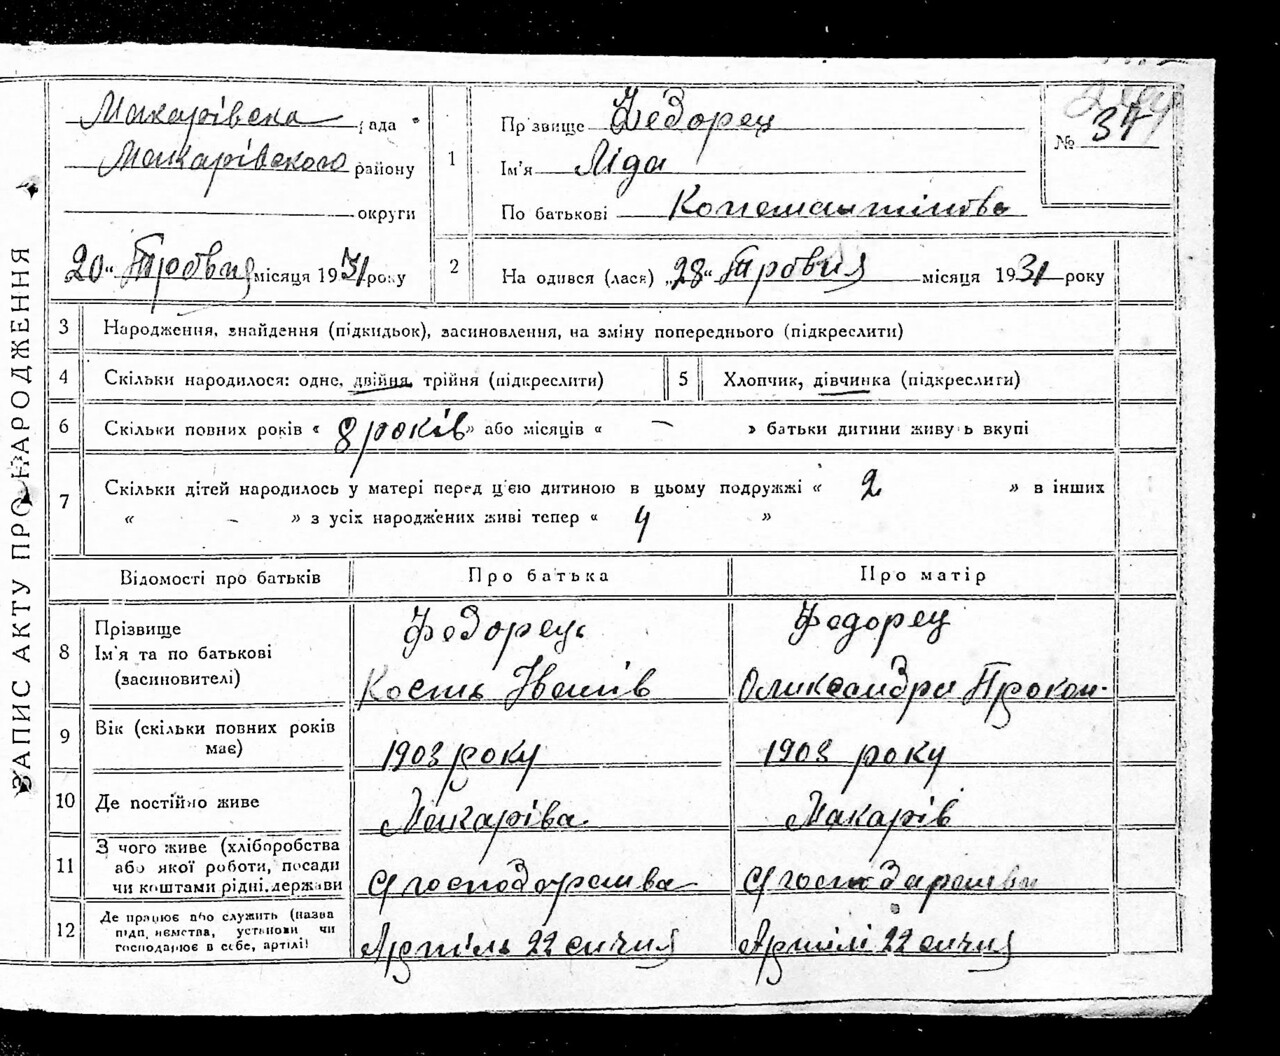 ЗАПИС АКТУ ПРО НАРОДЖЕННЯ
Макарівска рада
Макарівского району
округи
20 " Травня місяця 1931 року
1
Прізвище Федорец
Ім'я Ліда
По батькові Константінівна
№ 37
2
На одився (лася) „28" Травня місяця 1931 року
3 Народження, знайдення (підкидьок), засиновлення, на зміну попереднього (підкреслити)
4 Скільки народилося: одне, двійня, трійня (підкреслити)
5 Хлопчик, дівчинка (підкреслити)
6 Скільки повних років « 8 років » або місяців « – » батьки дитини живуть вкупі
7 Скільки дітей народилось у матері перед цією дитиною в цьому подружжі « 2 » в інших
« – » з усіх народжених живі тепер « 4 »
Відомості про батьків Про батька Про матір
8 Прізвище
Ім'я та по батькові
(засиновителі)
Федорець
Кость Іванів
Федорец
Олександра Прокоп.
9 Вік (скільки повних років
має)
1903 року
1908 року
10 Де постійно живе
Макарівa.
Макарів
11 З чого живе (хліборобства
або якої роботи, посади
чи коштами рідні, держави
С/господарства
С/господарства
12 Де працює або служить (назва
підприємства, установи чи
господарює в себе, артілі)
Артіль 22 січня
Артілі 22 січня